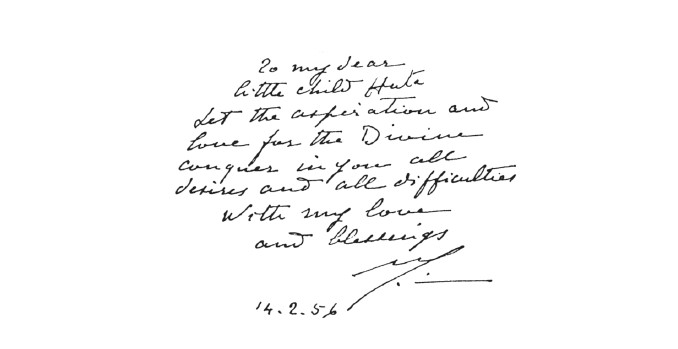 To my dear
little child Huta
Let the aspiration and
love for the Divine
conquer in you all
desires and all difficulties
With my love
and blessings
14.2.56